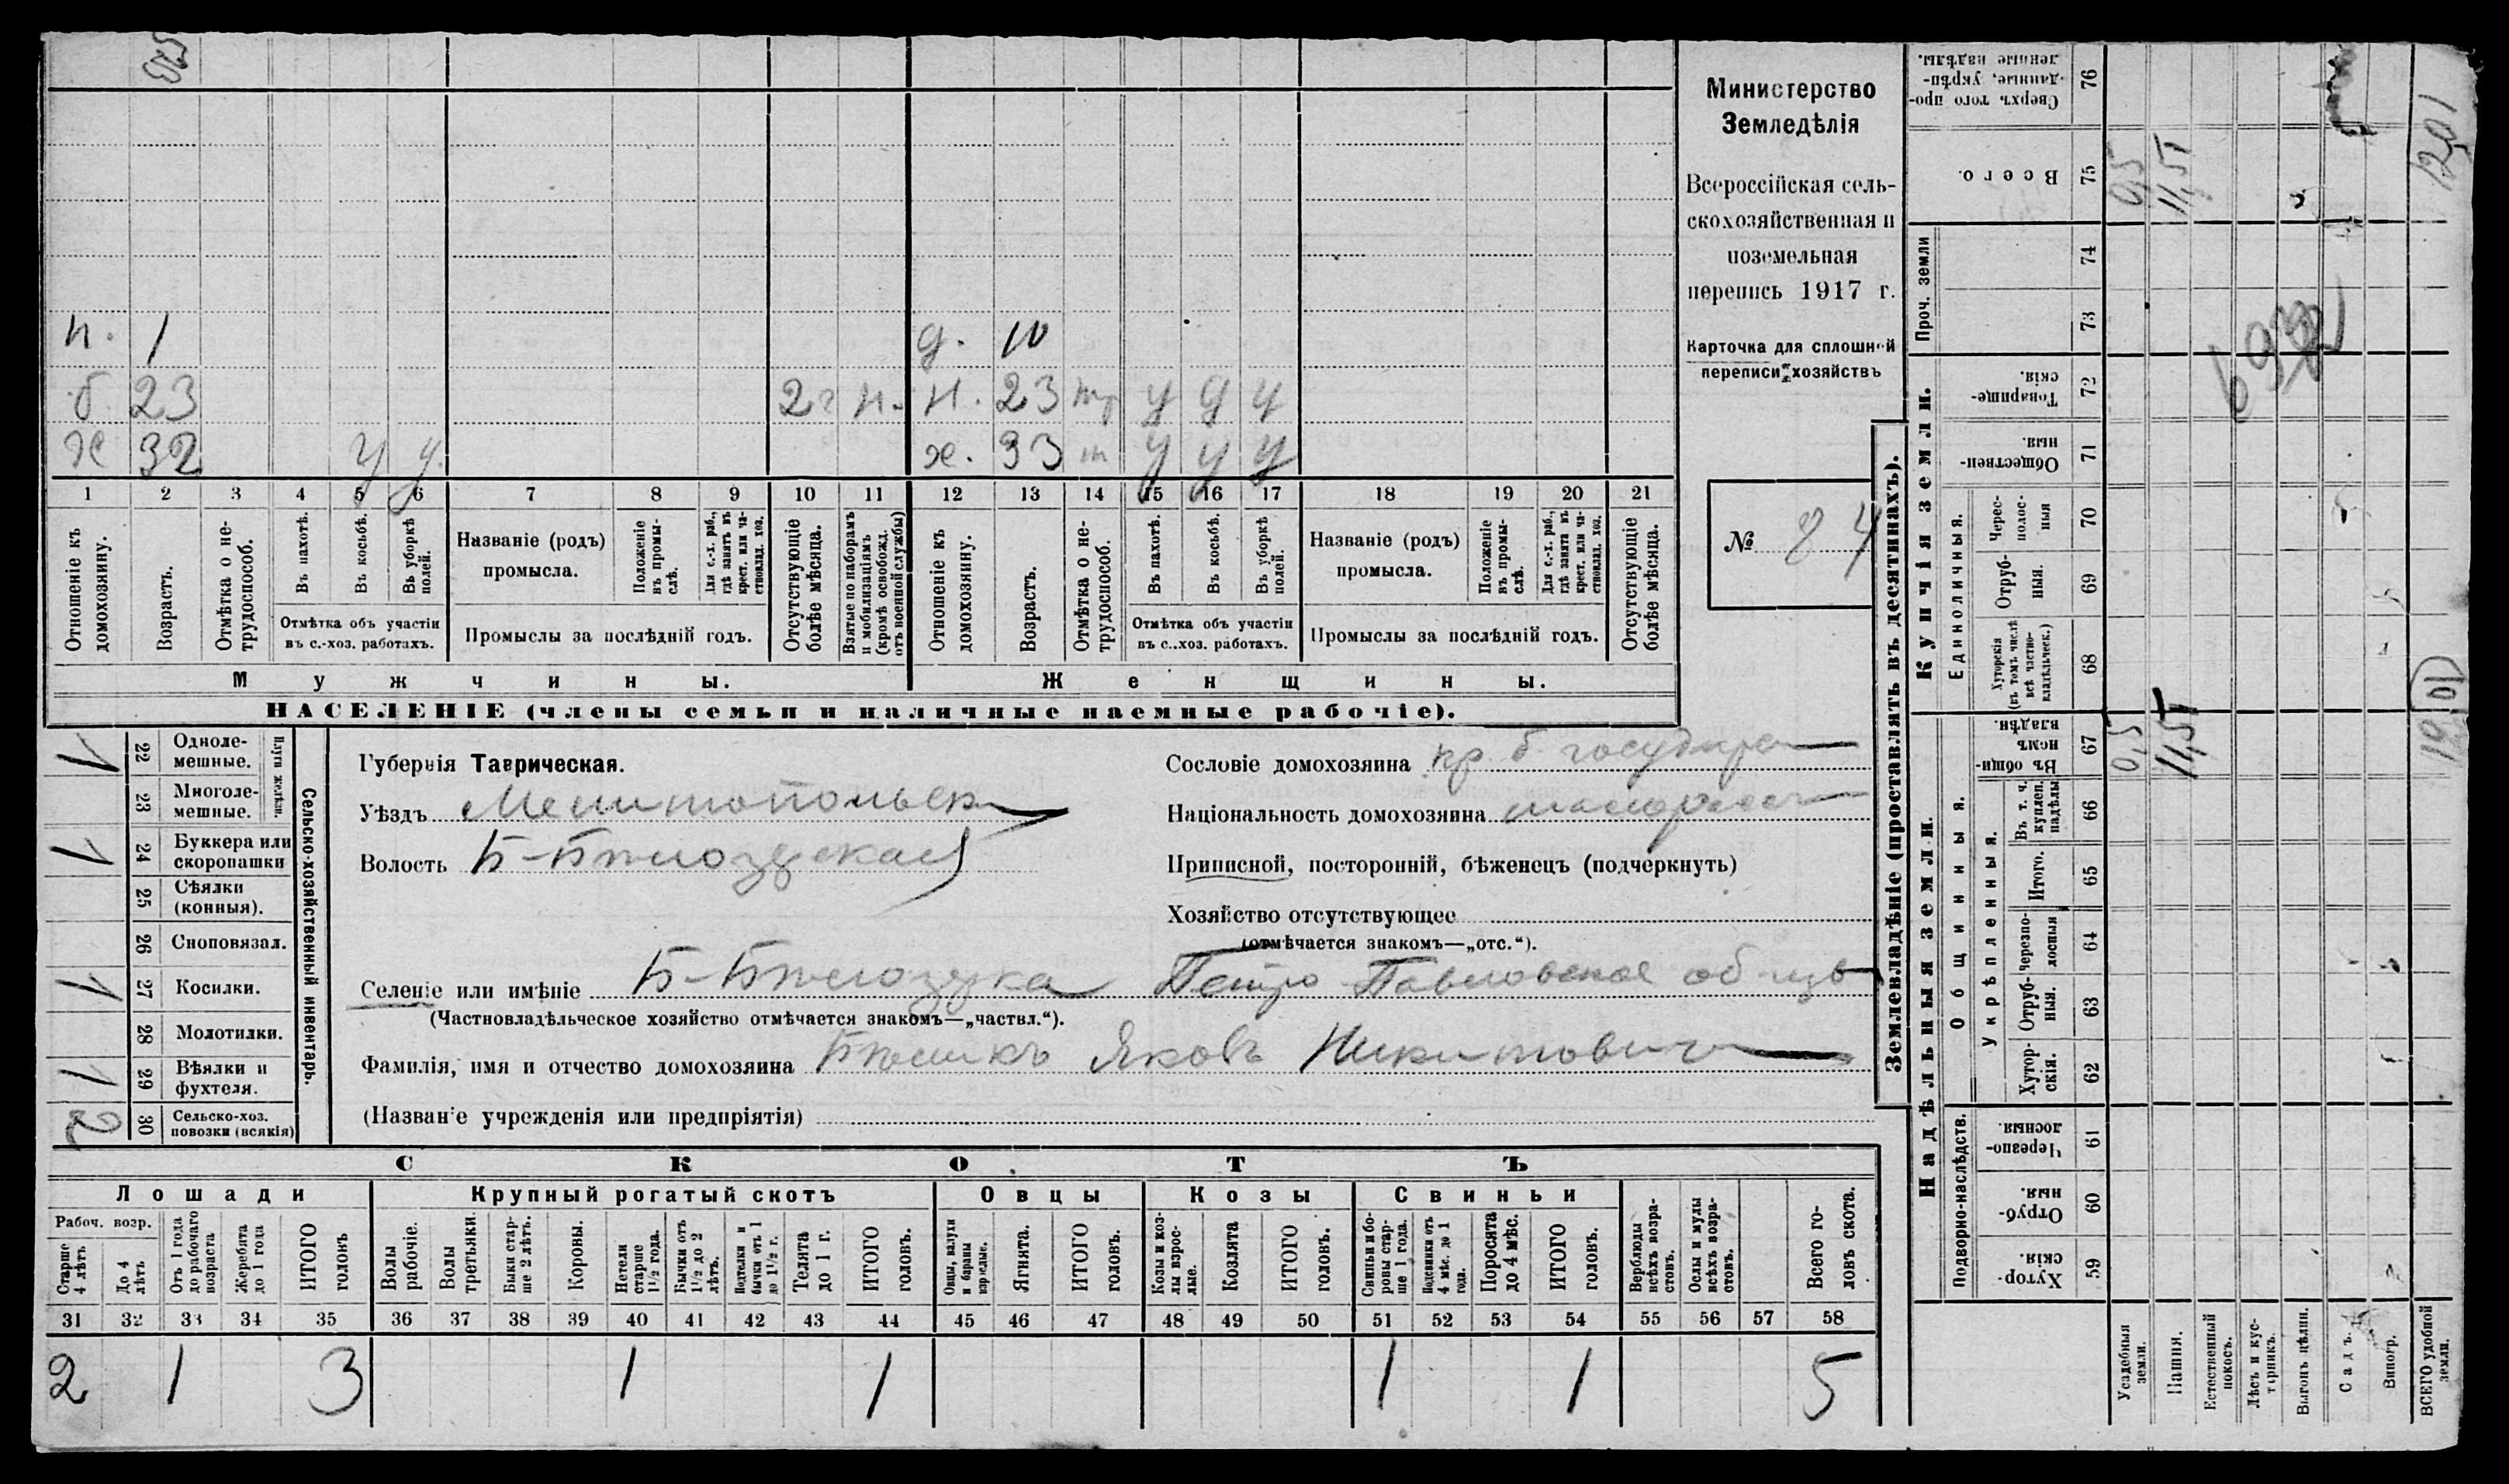 Министерство
Земледѣлія
Всероссійская сель-
скохозяйственная и
поземельная
перепись 1917 г.
Карточка для сплошной
переписи хозяйствъ
№ 84
п. 1 д. 10
б 23 2 г п. н. 23 тр у у у
х 32 у у х. 33 т у у у
1 2 3 4 5 6 7 8 9 10 11 12 13 14 15 16 17 18 19 20 21
Отношеніе къ домохозяину.
Возрастъ.
Отмѣтка о не-трудоспособ.
Въ пахотѣ.
Въ косьбѣ.
Въ уборкѣ полей.
Отмѣтка объ участіи
въ с.-хоз. работахъ.
Названіе (родъ)
промысла.
Положеніе въ промы-слѣ.
Для с.-х. раб., гдѣ занятъ въ крест. или ча-стновлад. хоз.
Промыслы за послѣдній годъ.
Отсутствующіе болѣе мѣсяца.
Взятые по наборамъ и мобилизаціямъ (кромѣ освобожд. отъ военной службы)
Отношеніе къ домохозяину.
Возрастъ.
Отмѣтка о не-трудоспособ.
Въ пахотѣ.
Въ косьбѣ.
Въ уборкѣ полей.
Отмѣтка объ участіи
въ с..хоз. работахъ.
Названіе (родъ)
промысла.
Положеніе въ промы-слѣ.
Для с.-х. раб., гдѣ занята въ крест. или ча-стновлад. хоз.
Промыслы за послѣдній годъ.
Отсутствующіе болѣе мѣсяца.
Мужчины. Женщины.
НАСЕЛЕНІЕ (члены семьи и наличные наемные рабочіе).
Сельско-хозяйственный инвентарь.
Плуги желѣзн.
1 22 Одноле-мешные.
23 Многоле-мешные.
1 24 Буккера или скоропашки
25 Сѣялки (конныя).
26 Сноповязал.
1 27 Косилки.
28 Молотилки.
1 29 Вѣялки и фухтеля.
2 30 Сельско-хоз. повозки (всякія)
Губернія Таврическая.
Уѣздъ Мелитопольск
Волость Б-Бѣлозерская
Селеніе или имѣніе Б-Бѣлозерка Петро Павловское общв
(Частновладѣльческое хозяйство отмѣчается знакомъ—„частвл.“).
Фамилія, имя и отчество домохозяина Бѣликъ Яковъ Никитович
(Названіе учрежденія или предпріятія)
Сословіе домохозяина кр. б. государ
Національность домохозяина малоросс
Приписной, посторонній, бѣженецъ (подчеркнуть)
Хозяйство отсутствующее
(отмѣчается знакомъ—„отс.“).
СКОТЪ
Лошади Крупный рогатый скотъ Овцы Козы Свиньи
Рабоч. возр.
Старше 4 лѣтъ
До 4 лѣтъ
Отъ 1 года до рабочаго возраста
Жеребята до 1 года
ИТОГО головъ
Волы рабочіе.
Волы третьяки.
Быки стар-ше 2 лѣтъ.
Коровы.
Нетели старше 1½ года.
Бычки отъ 1½ до 2 лѣтъ.
Подтелки и бычки отъ 1 до 1½ г.
Телята до 1 г.
ИТОГО головъ.
Овцы, валухи и бараны взрослые.
Ягнята.
ИТОГО головъ.
Козы и коз-лы взрос-лые.
Козлята
ИТОГО головъ.
Свиньи и бо-ровы стар-ше 1 года.
Подсвинки отъ 4 мѣс. до 1 года.
Поросята до 4 мѣс.
ИТОГО головъ.
Верблюды всѣхъ возра-стовъ.
Ослы и мулы всѣхъ возра-стовъ.
Всего го-ловъ скота.
31 32 33 34 35 36 37 38 39 40 41 42 43 44 45 46 47 48 49 50 51 52 53 54 55 56 57 58
2 1 3 1 1 1 1 5
Землевладѣніе (проставлять въ десятинахъ).
Надѣльныя земли.
Купчія земли.
Проч. земли
Подворно-наслѣдств.
Общинныя.
Укрѣпленныя.
Единоличныя.
Сверхъ того про-данные, укрѣп-ленные надѣлы. 76
Всего. 75 0,5 11,51 1201
74
73
Товарище-скія. 72
Обществен-ныя. 71
Черес-полос-ныя 70
Отруб-ныя. 69
Хуторскія (въ томъ числѣ всѣ частно-владѣльческ.) 68
Въ общи-номъ владѣн. 67 0,5 11,51
Въ т. ч. куплен. надѣлы 66
Итого. 65
Черезпо-лосныя 64
Отруб-ныя. 63
Хутор-скія. 62
Черезпо-лосныя. 61
Отруб-ныя. 60
Хутор-скія. 59
Усадебныя земли.
Пашня.
Естественный покосъ.
Лѣсъ и кус-тарникъ.
Выгонъ цѣлин.
Садъ.
Виногр.
ВСЕГО удобной земли.